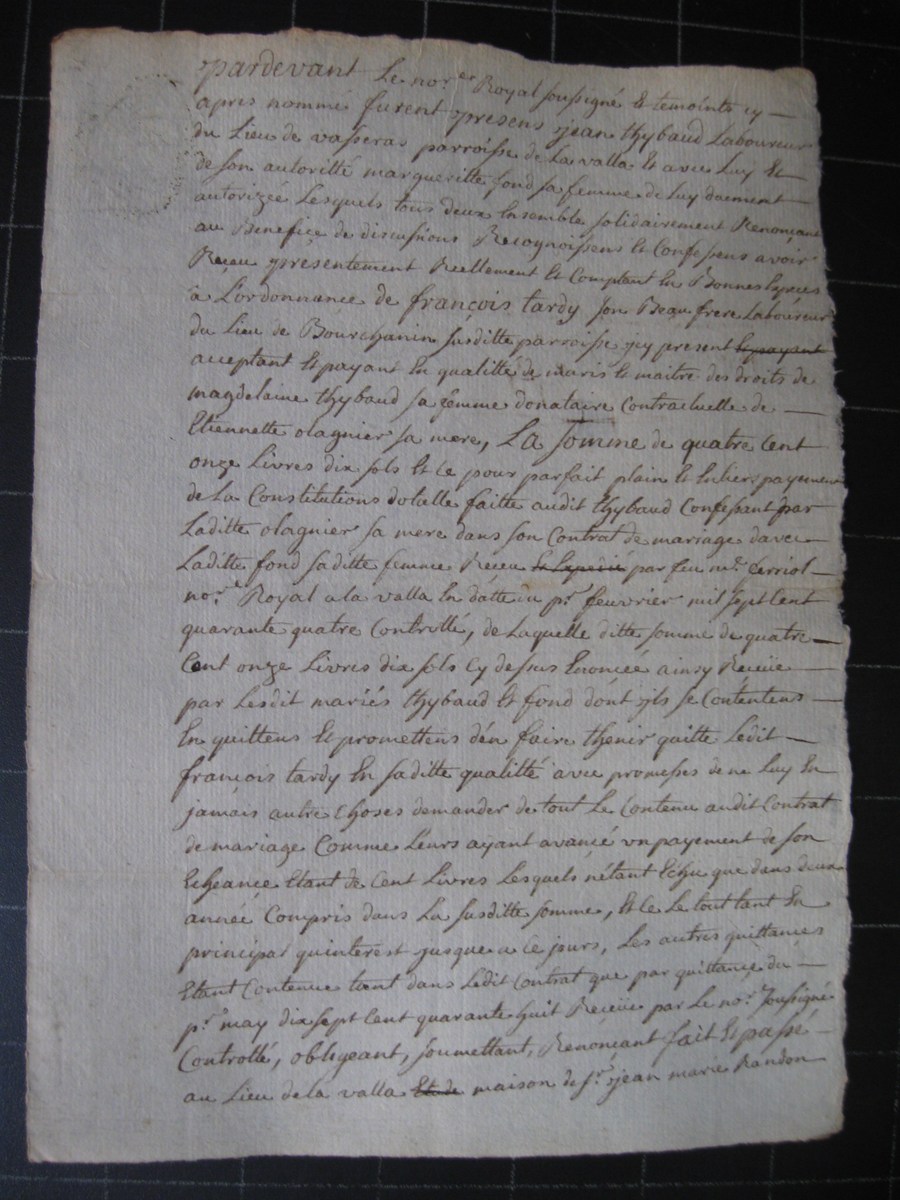 pardevant Le nor.er Royal soussigné et temoints cy —
apres nommé furent presens jean thybaud Laboureur
du Lieu de vasseras parroisse de La valla Et avec Luy Et
de son autoritté margueritte fond sa femme de Luy duement
autorizée Lesquels tous deux Ensemble solidairement Renonçant
au Benefice de discussions Recognoissens Et Confessens avoir
Reçeu presentement Reellement Et Comptant En Bonnes Espèces
à L'ordonnance de françois tardy son Beau frere Laboureur
du Lieu de Bourchanin susditte parroisse jcy present Et payant
acceptant Et payant En qualitté de maris Et maitre des droits de
magdelaine thybaud sa femme donataire Contractuelle de —
Etiennette olagnier sa mere, La somme de quatre Cent
onze Livres dix sols Et Ce pour parfait plain Et Entiers payement
de La Constitutions dotalle faitte audit thybaud Confessant par
Laditte olagnier sa mere dans son Contrat de mariage d'avec
Laditte fond saditte femme Receu par feu m.e Cerriol
nor.e Royal a la valla En datte du p.r feuvrier mil sept Cent
quarante quatre Controllé, de Laquelle ditte somme de quatre —
Cent onze Livres dix sols Cy dessus Enoncée ainsy Reçeüe —
par Lesdit mariés thybaud Et fond dont jls se Contentens —
En quittens Et promettens d'en faire thenir quitte Ledit —
françois tardy En saditte qualitté avec promesses de ne Luy En
jamais autre Choses demander de tout Le Contenu audit Contrat
de mariage Comme Leurs ayant avancé vn payement de son
Echeance Etant de Cent Livres Lesquels n'étant Echu que dans deux
année Compris dans La susditte somme, Et Ce Le tout tant En
principal qu'interest jusque a Ce jours, Les autres quittances
Etant Contenue tant dans Ledit Contrat que par quittance du —
p.r may dix sept Cent quarante huit Reçeüe par Le nor.e soussigné
Controllé, obligeant, soumettant, Renonçant fait Et passé —
au Lieu de la valla Et de maison de s.r jean marie Randon